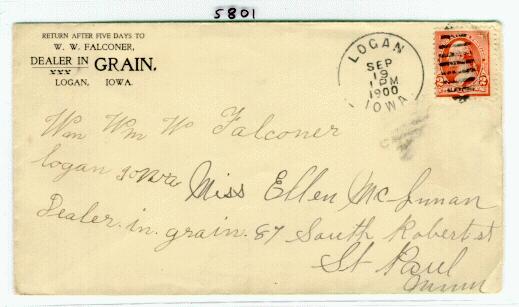 5801
RETURN AFTER FIVE DAYS TO
W. W. FALCONER,
DEALER IN GRAIN.
XXX
LOGAN, IOWA.
LOGAN
SEP
19
1 PM
1900
IOWA
Wm Wm W Falconer
logan Iowa Miss Ellen
Dealer. in. grain. 87 South Robert st
St Paul
Minn